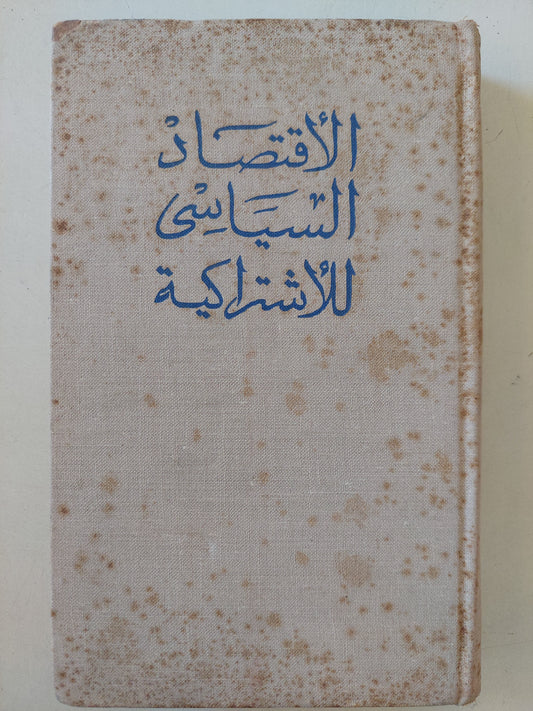 الأقتصاد
السياسى
للأشتراكية